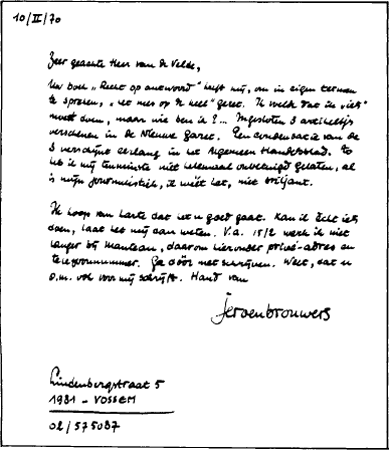 10/II/70
Zeer geachte Heer van de Velde,
Uw boek "Recht op antwoord" heeft mij, om in eigen termen
te spreken, "het mes op de keel" gezet. Ik voelde dat ik "iets"
moest doen, maar wie ben ik?... Ingesloten 3 artikeltjes
verschenen in De Nieuwe Gazet. Een condensatie van de
3 verschijnt eerlang in het Algemeen Handelsblad. Zo
heb ik mij tenminste niet helemaal onbetuigd gelaten, al
is mijn journalistiek, ik wéét het, niet briljant.
Ik hoop van harte dat het u goed gaat. Kan ik écht iets
doen, laat het mij dan weten. V.a. 15/2 werk ik niet
langer bij Manteau, daarom hieronder privé-adres en
telefoonnummer. Ga dóór met schrijven. Weet, dat u
o.m. ook voor mij schrijft. Hand van
jeroenbrouwers
Lindenbergstraat 5
1981 - VOSSEM
02/575087